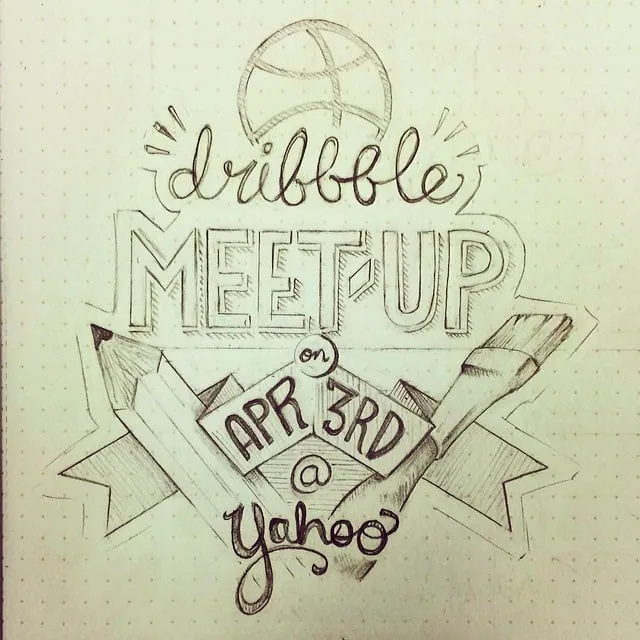 dribbble
MEET-UP
on
APR 3RD
@
yahoo